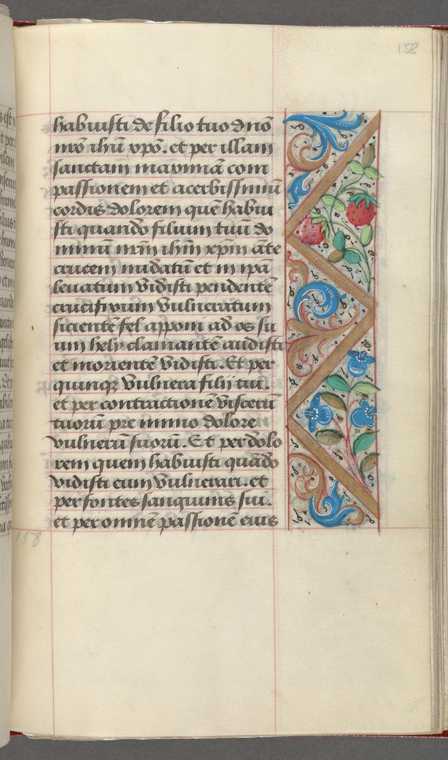 158
habuisti de filio tuo dnō
nrō ihū xpō. et per illam
sanctam maximā com
passionem et acerbissimū
cordis dolorem quē habui
sti quando filium tuū do
minum nrm̄ ihm̄ xpm̄ ante
crucem nudatū et in ipā
leuatum vidisti pendentē
crucifixum vulneratum
sicientē fel apponi ad os su
um hely clamantē audisti
et morientē vidisti. Et per
quinqꝫ vulnera filij tui.
et per contractionē viscerū
tuorū pre nimio dolore
vulnerū suorū. Et per dolo
rem quem habuisti quādo
vidisti eum vulnerari. et
per fontes sanguinis sui.
et per omnē passionē eius
158